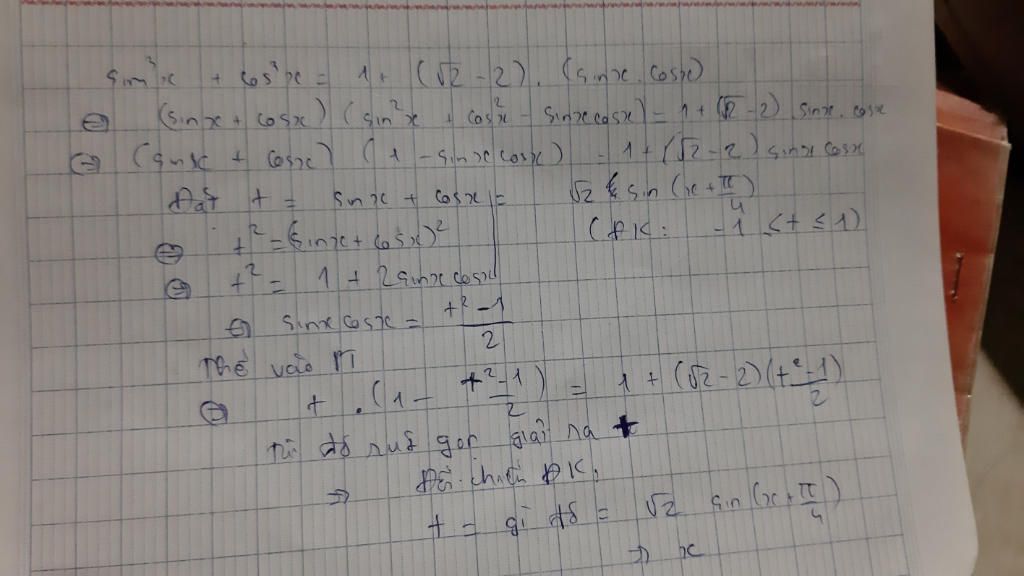 sin³x + cos³x = 1 + (√2 - 2). (sinx.cosx)
⇔ (sinx + cosx) (sin²x + cos²x - sinxcosx) = 1 + (√2 - 2) sinx.cosx
⇔ (sinx + cosx) (1 - sinxcosx) = 1 + (√2 - 2) sinxcosx
Đặt t = sinx + cosx = √2 sin (x + π/4)
⇔ t² = (sinx + cosx)² (ĐK: -1 ≤ t ≤ 1)
⇔ t² = 1 + 2sinxcosx
⇔ sinxcosx = (t² - 1)/2
Thế vào PT
⇔ t . (1 - (t² - 1)/2) = 1 + (√2 - 2)((t² - 1)/2)
Từ đó rút gọn giải ra t
⇒ Đối chiếu ĐK.
t = gì đó = √2 sin (x + π/4)
⇒ x